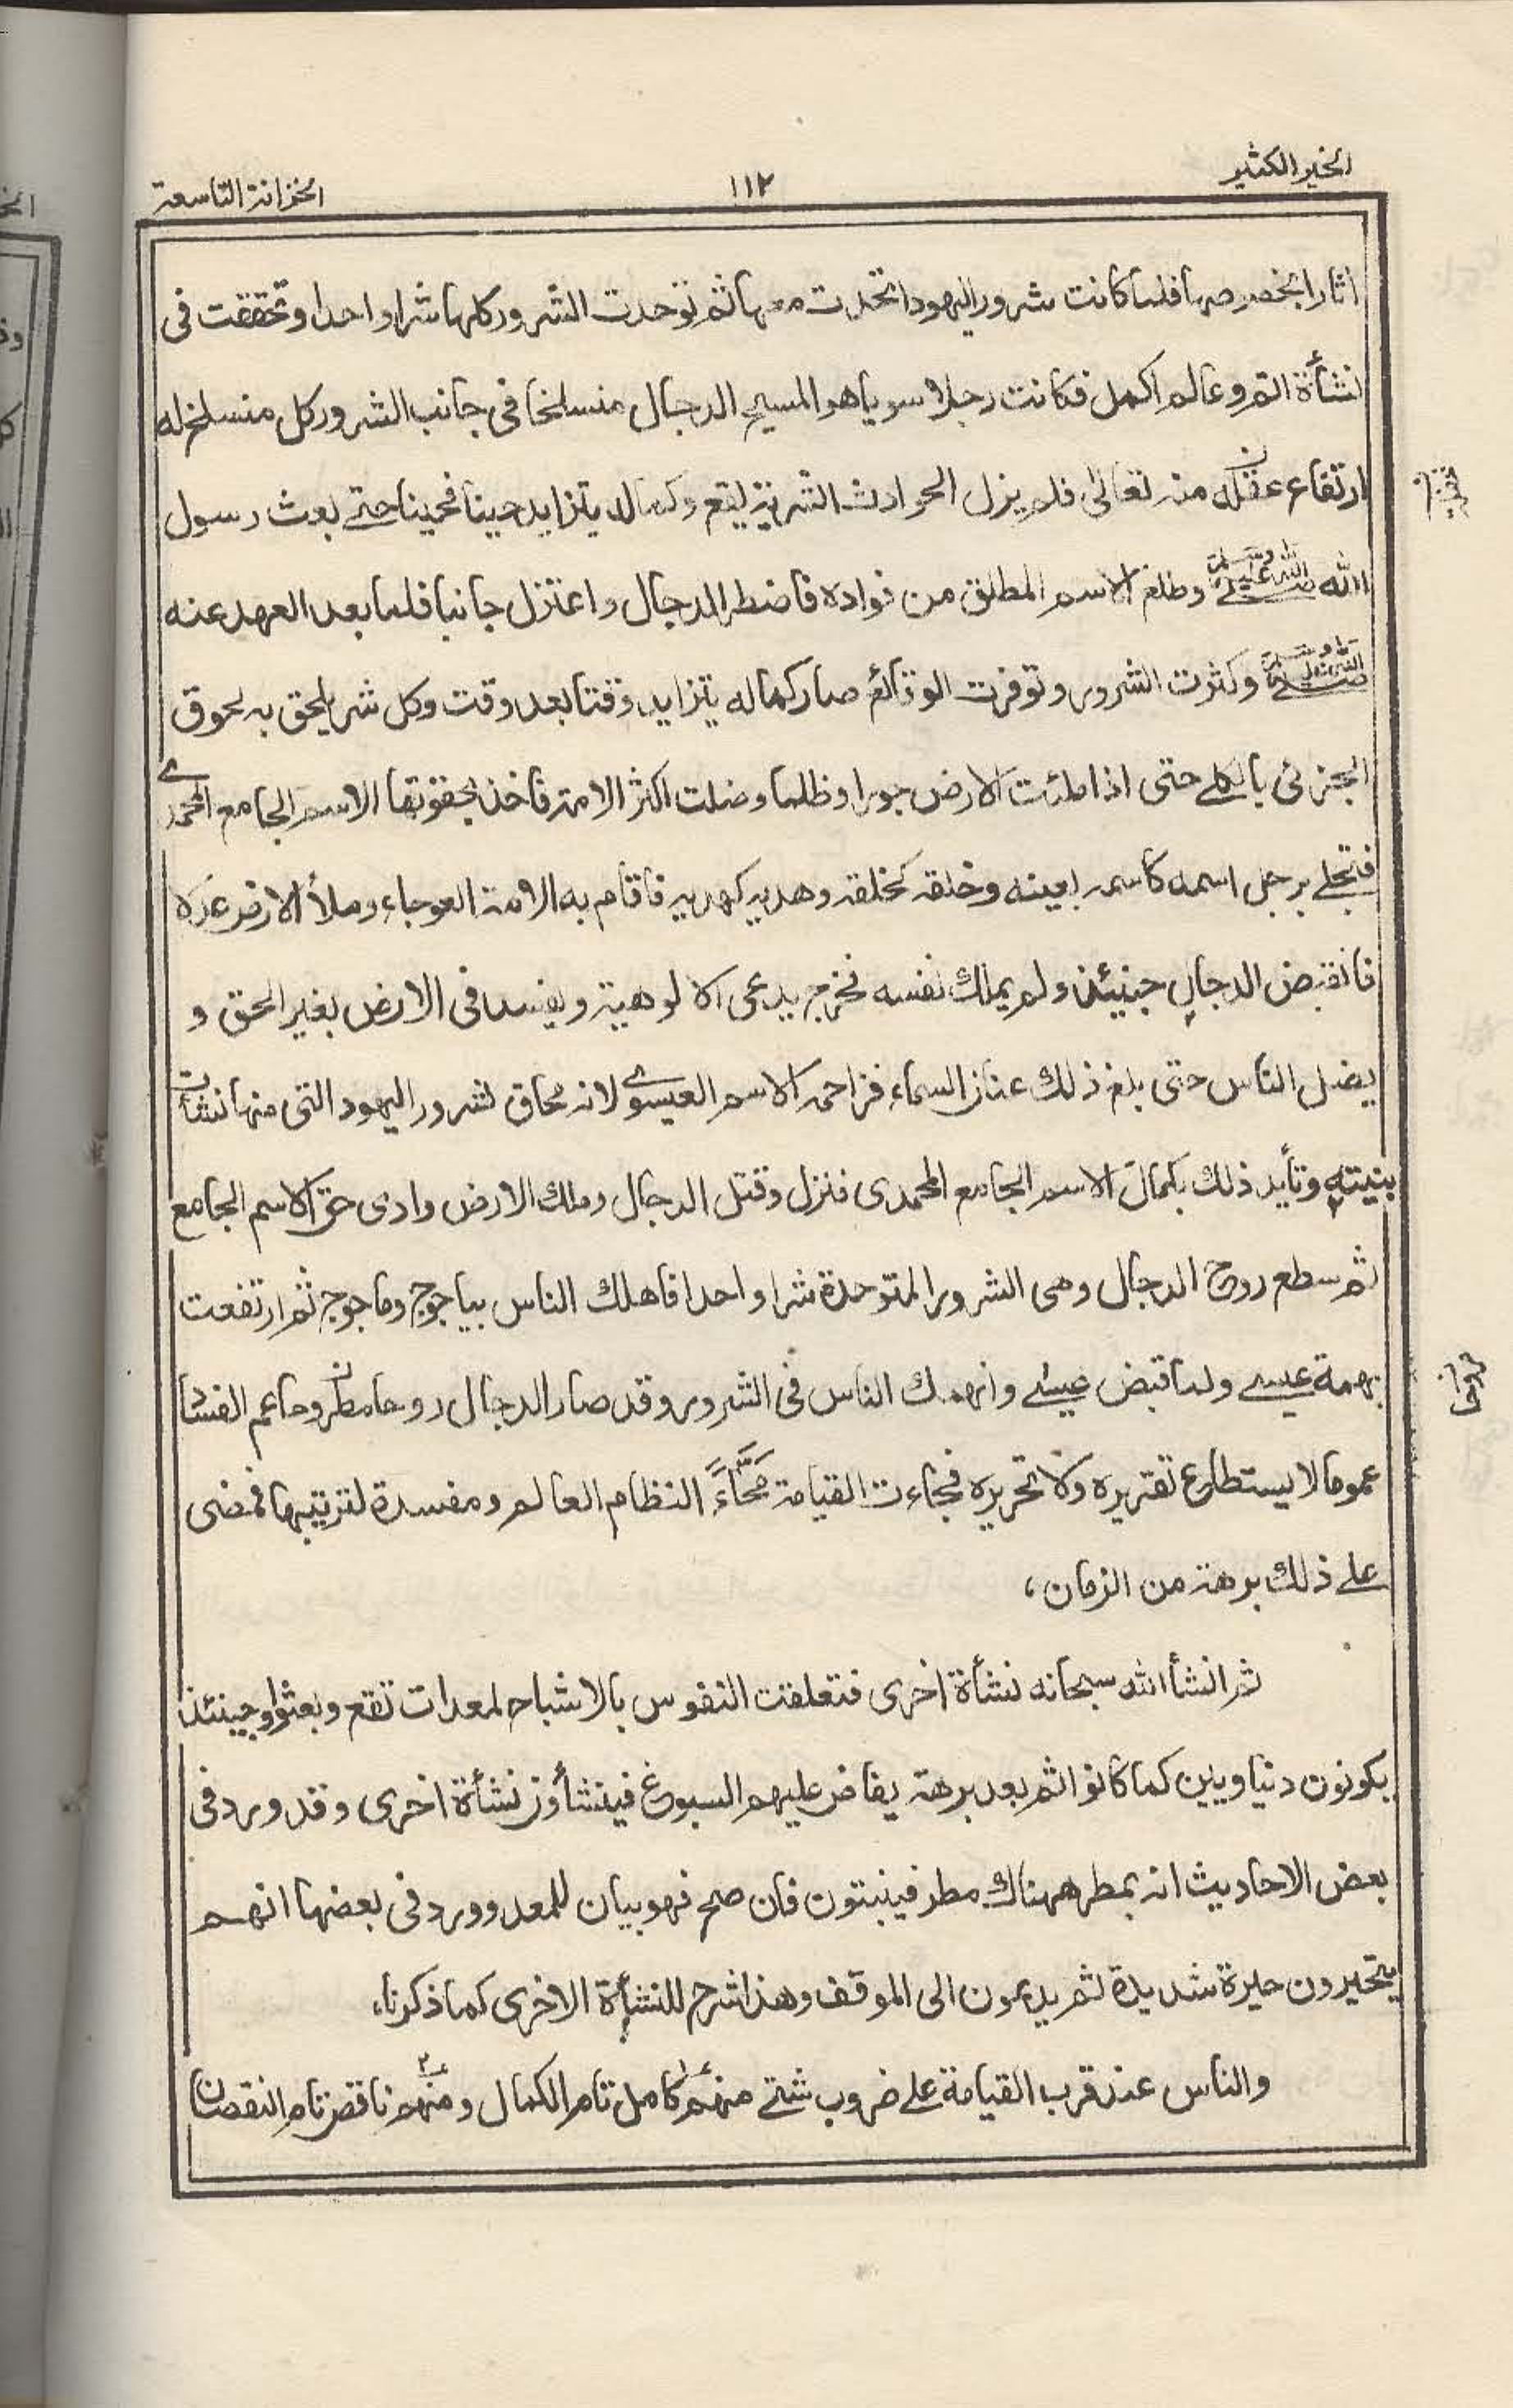 الخير الكثير
١١٢
الخزانة التاسعة
اثارا بخصوصها فلما كانت شرور اليهود اتحدت معها ثم توحدت الشرور كلها شرا واحدا وتحققت فى
نشأة اتم وعالم اكمل فكانت رجلا سويا هو المسيح الدجال منسلخا فى جانب الشر وركل منسلخ له
ارتقاع منه تعالى فلم يزل الحوادث الشرية ليقع وكماله يتزايد حينا فحينا حتى بعث رسول
الله صلى الله عليه وسلم وطلع الاسم المطلق من فواده فاضطر الدجال واعتزل جانبا فلما بعد العهد عنه
صلى الله عليه وسلم وكثرت الشرور وتوفرت الوقائع صار كماله يتزايد وقتا بعد وقت وكل شر يلحق به لحوق
الجزئى بالكلى حتى اذا ملئت الارض جورا وظلما وضلت اكثر الامة فاخذ بحقوتها الاسم الجامع المحمدى
فتجلى برجل اسمه كاسمه بعينه وخلقه كخلقه وهديه كهديه فاقام به الامة العوجاء وملأ الارض عدلا
فانقبض الدجال حينئذ ولم يملك نفسه فخرج يدعى الالوهية ويفسد فى الارض بغير الحق و
يضل الناس حتى بلغ ذلك عنان السماء فزاحمه الاسم العيسوى لانه محاق لشرور اليهود التى منها نشأت
بنيته وتأيد ذلك بكمال الاسم الجامع المحمدى فنزل وقتل الدجال وملك الارض وادى حق الاسم الجامع
ثم سطع روح الدجال وهى الشرور المتوحدة شرا واحدا فاهلك الناس بياجوج وماجوج ثم ارتفعت
بهمة عيسى ولما قبض عيسى وانهمك الناس فى الشرور وقد صار الدجال روحا عم الفساد
عموما لا يستطاع تقريره ولا تحريره فجاءت القيامة مَحَّاءً النظام العالم ومفسدة لترتيبها فمضى
على ذلك برهة من الزمان،
ثم انشأ الله سبحانه نشأة اخرى فتعلقت النفوس بالاشباح لمعدات تقع وبعثوا وحينئذ
يكونون دنياويين كما كانوا ثم بعد برهة يفاض عليهم السبوغ فينشأون نشأة اخرى وقد ورد فى
بعض الاحاديث انه يمطر ههناك مطر فينبتون فان صح فهو بيان للمعد وورد فى بعضها انهم
يتحيرون حيرة شديدة ثم يدعون الى الموقف وهذا شرح للنشأة الاخرى كما ذكرنا،
والناس عند قرب القيامة على ضروب شتى منهم كامل تام الكمال ومنهم ناقص تام النقصان